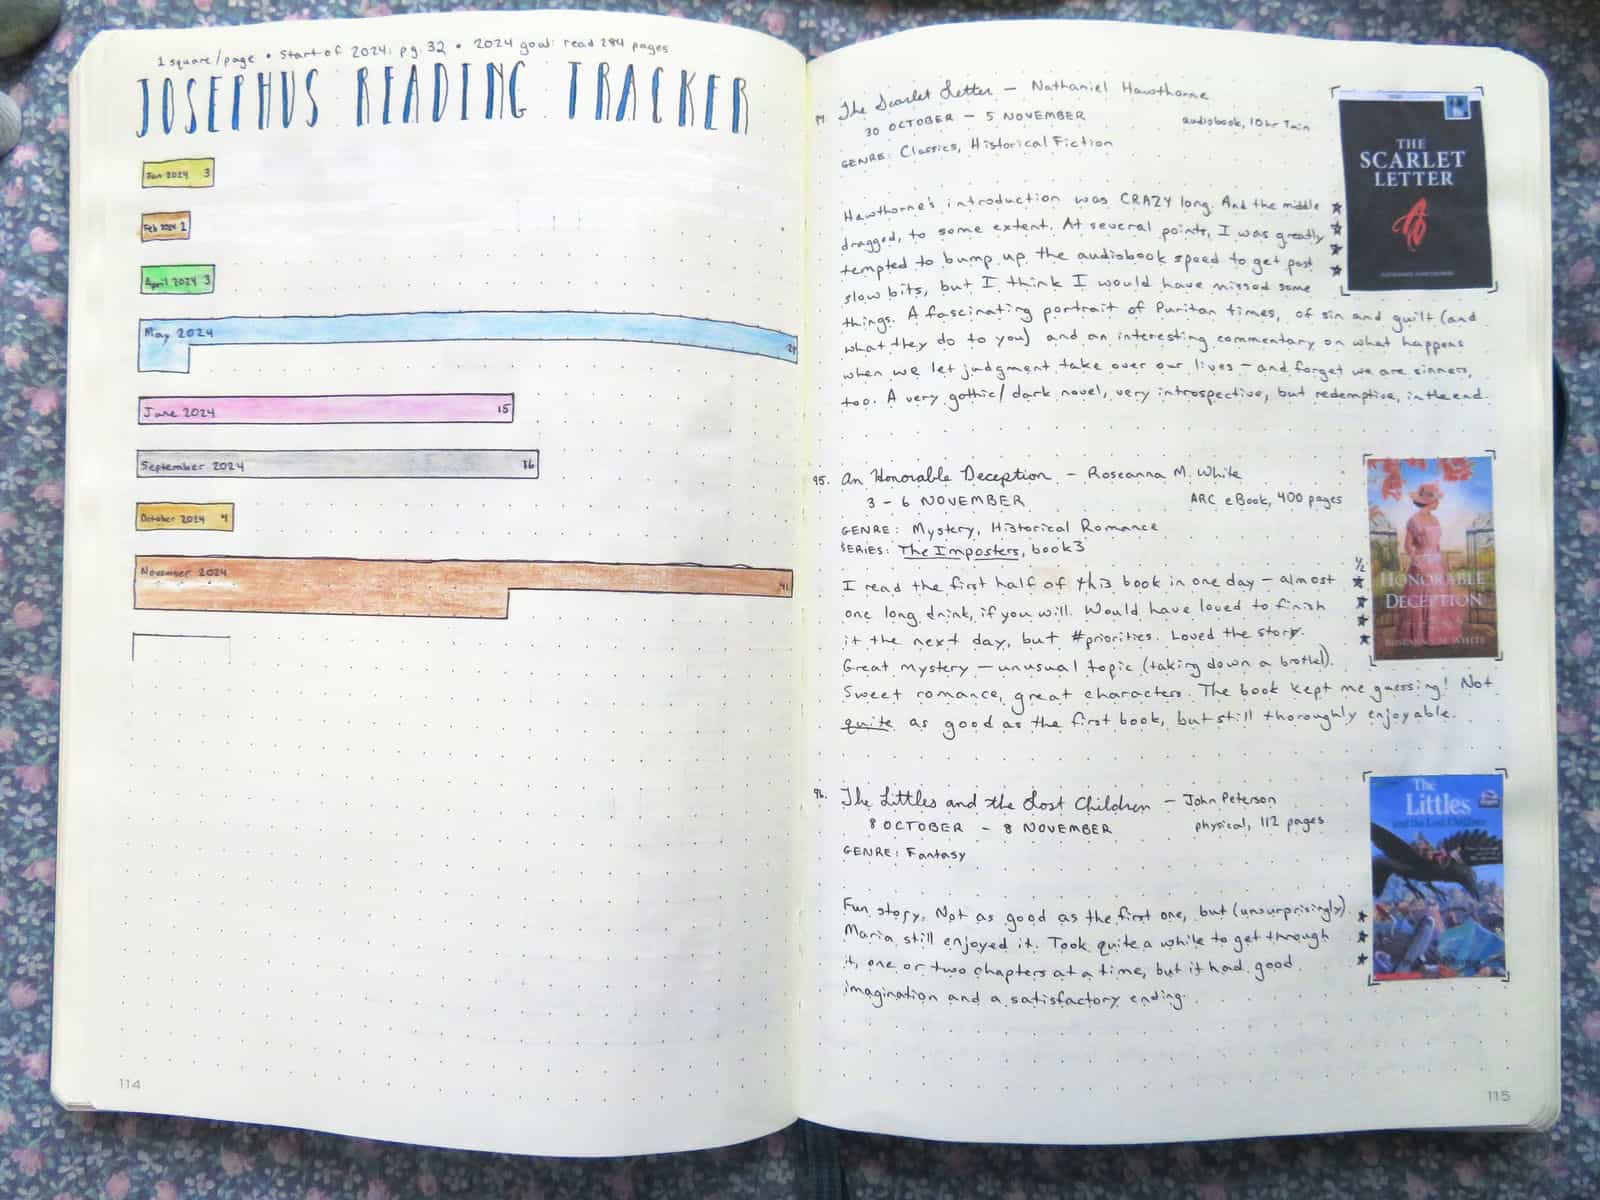 1 square/page • Start of 2024: pg. 32 • 2024 goal: read 284 pages
JOSEPHUS READING TRACKER
Jan 2024 3
Feb 2024 2
April 2024 3
May 2024
29
June 2024 15
September 2024 16
October 2024 4
November 2024
41
114
The Scarlet Letter — Nathaniel Hawthorne
30 OCTOBER — 5 NOVEMBER audiobook, 10 hr 7 min
GENRE: Classics, Historical Fiction
Hawthorne's introduction was CRAZY long. And the middle
dragged, to some extent. At several points, I was greatly
tempted to bump up the audiobook speed to get past
slow bits, but I think I would have missed some
things. A fascinating portrait of Puritan times, of sin and guilt (and
what they do to you) and an interesting commentary on what happens
when we let judgment take over our lives — and forget we are sinners,
too. A very gothic/dark novel, very introspective, but redemptive, in the end.
THE
SCARLET
LETTER
95. An Honorable Deception — Roseanna M. White
3 - 6 NOVEMBER ARC eBook, 400 pages
GENRE: Mystery, Historical Romance
SERIES: The Imposters, book 3
1/2
I read the first half of this book in one day — almost
one long drink, if you will. Would have loved to finish
it the next day, but #priorities. Loved the story.
Great mystery — unusual topic (taking down a brothel).
Sweet romance, great characters. The book kept me guessing! Not
quite as good as the first book, but still thoroughly enjoyable.
HONORABLE
DECEPTION
ROSEANNA M. WHITE
96. The Littles and the Lost Children — John Peterson
8 OCTOBER - 8 NOVEMBER physical, 112 pages
GENRE: Fantasy
Fun story. Not as good as the first one, but (unsurprisingly)
Maria still enjoyed it. Took quite a while to get through
it, one or two chapters at a time, but it had good
imagination and a satisfactory ending.
The
Littles
and the Lost Children
115